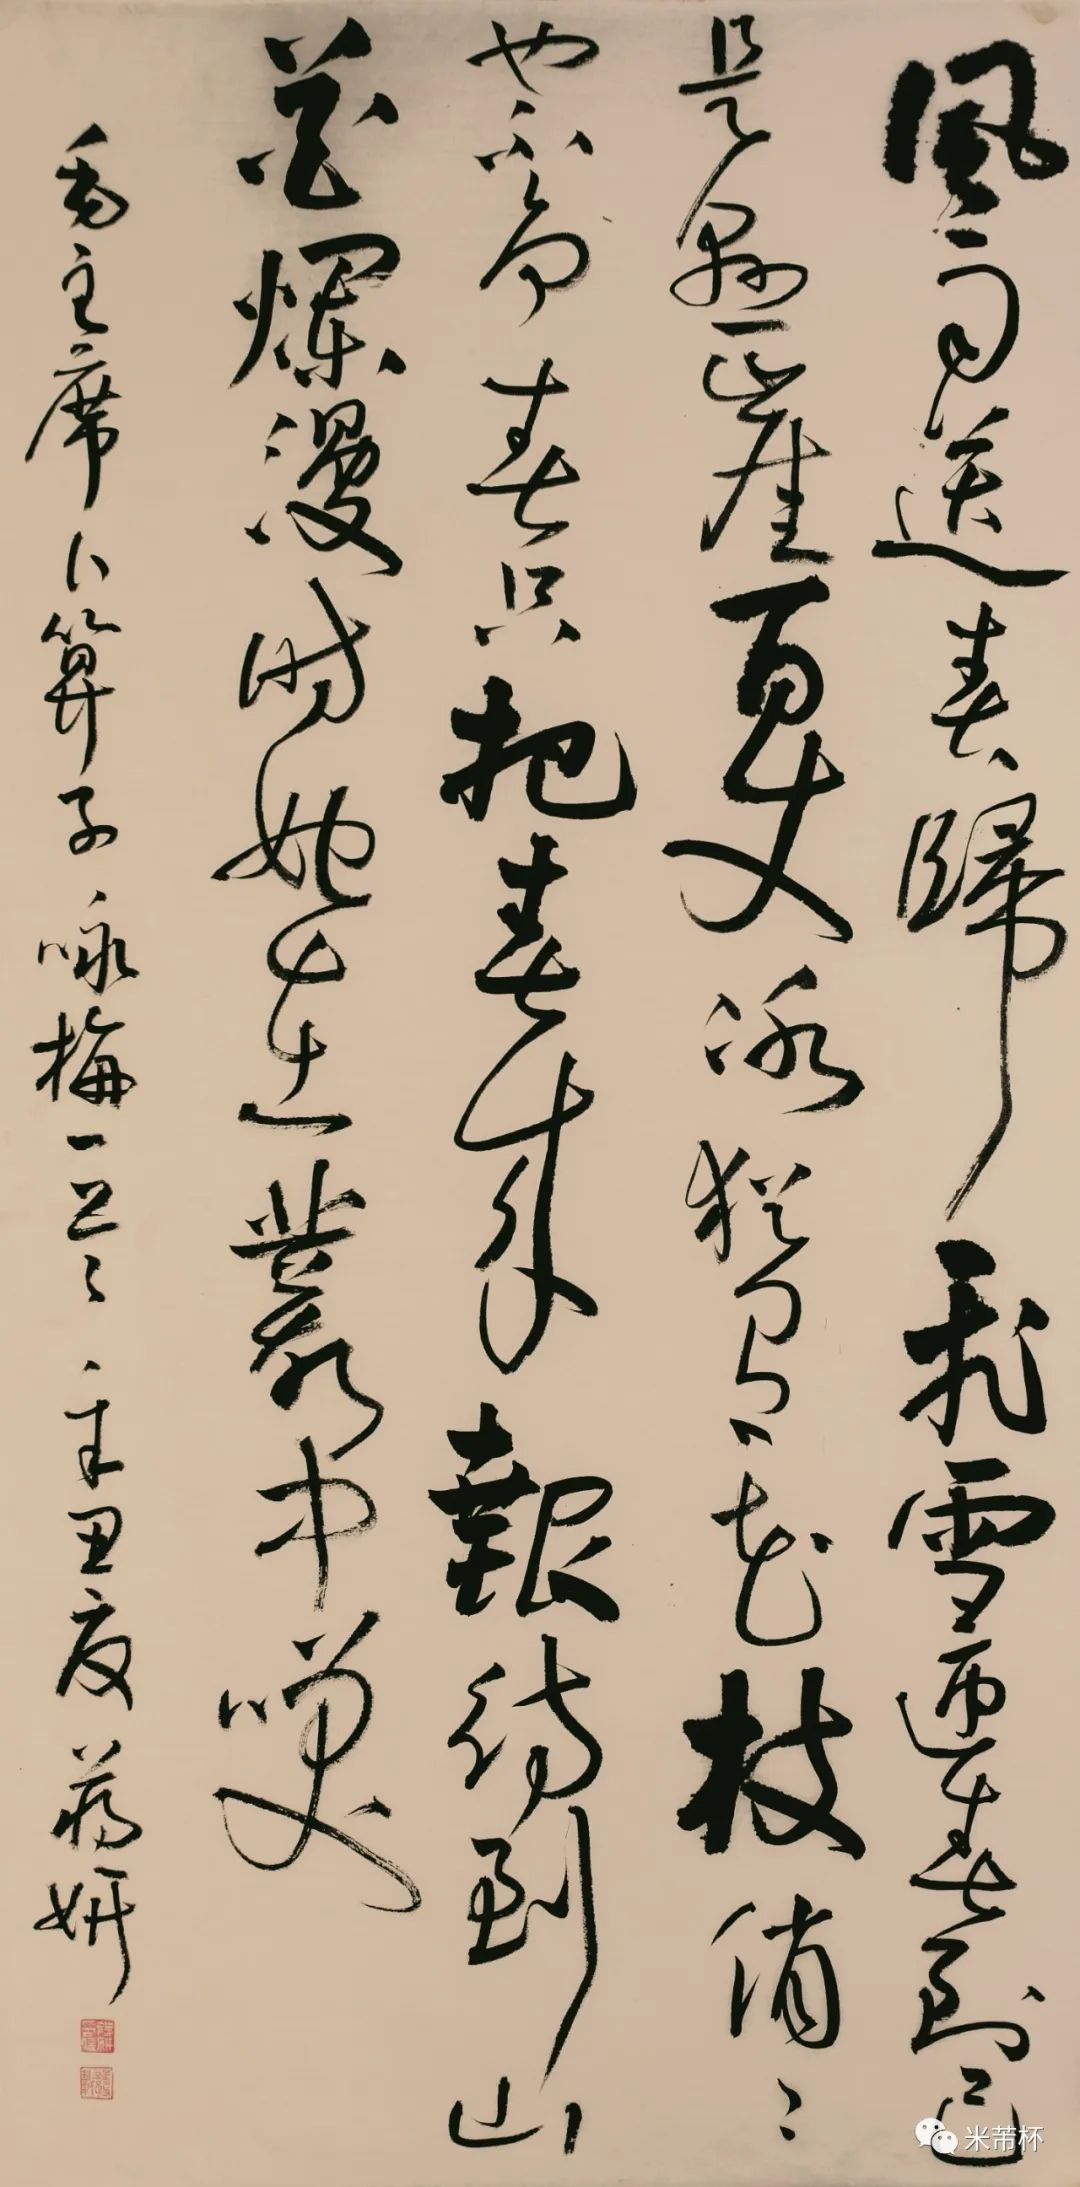 風雨送春歸飛雪迎春到已
是懸崖百丈冰猶有花枝俏〻
也不爭春只把春來報待到山
花爛漫時她在叢中咲
毛主席卜算子咏梅一 辛丑夏蔣妍
米芾杯